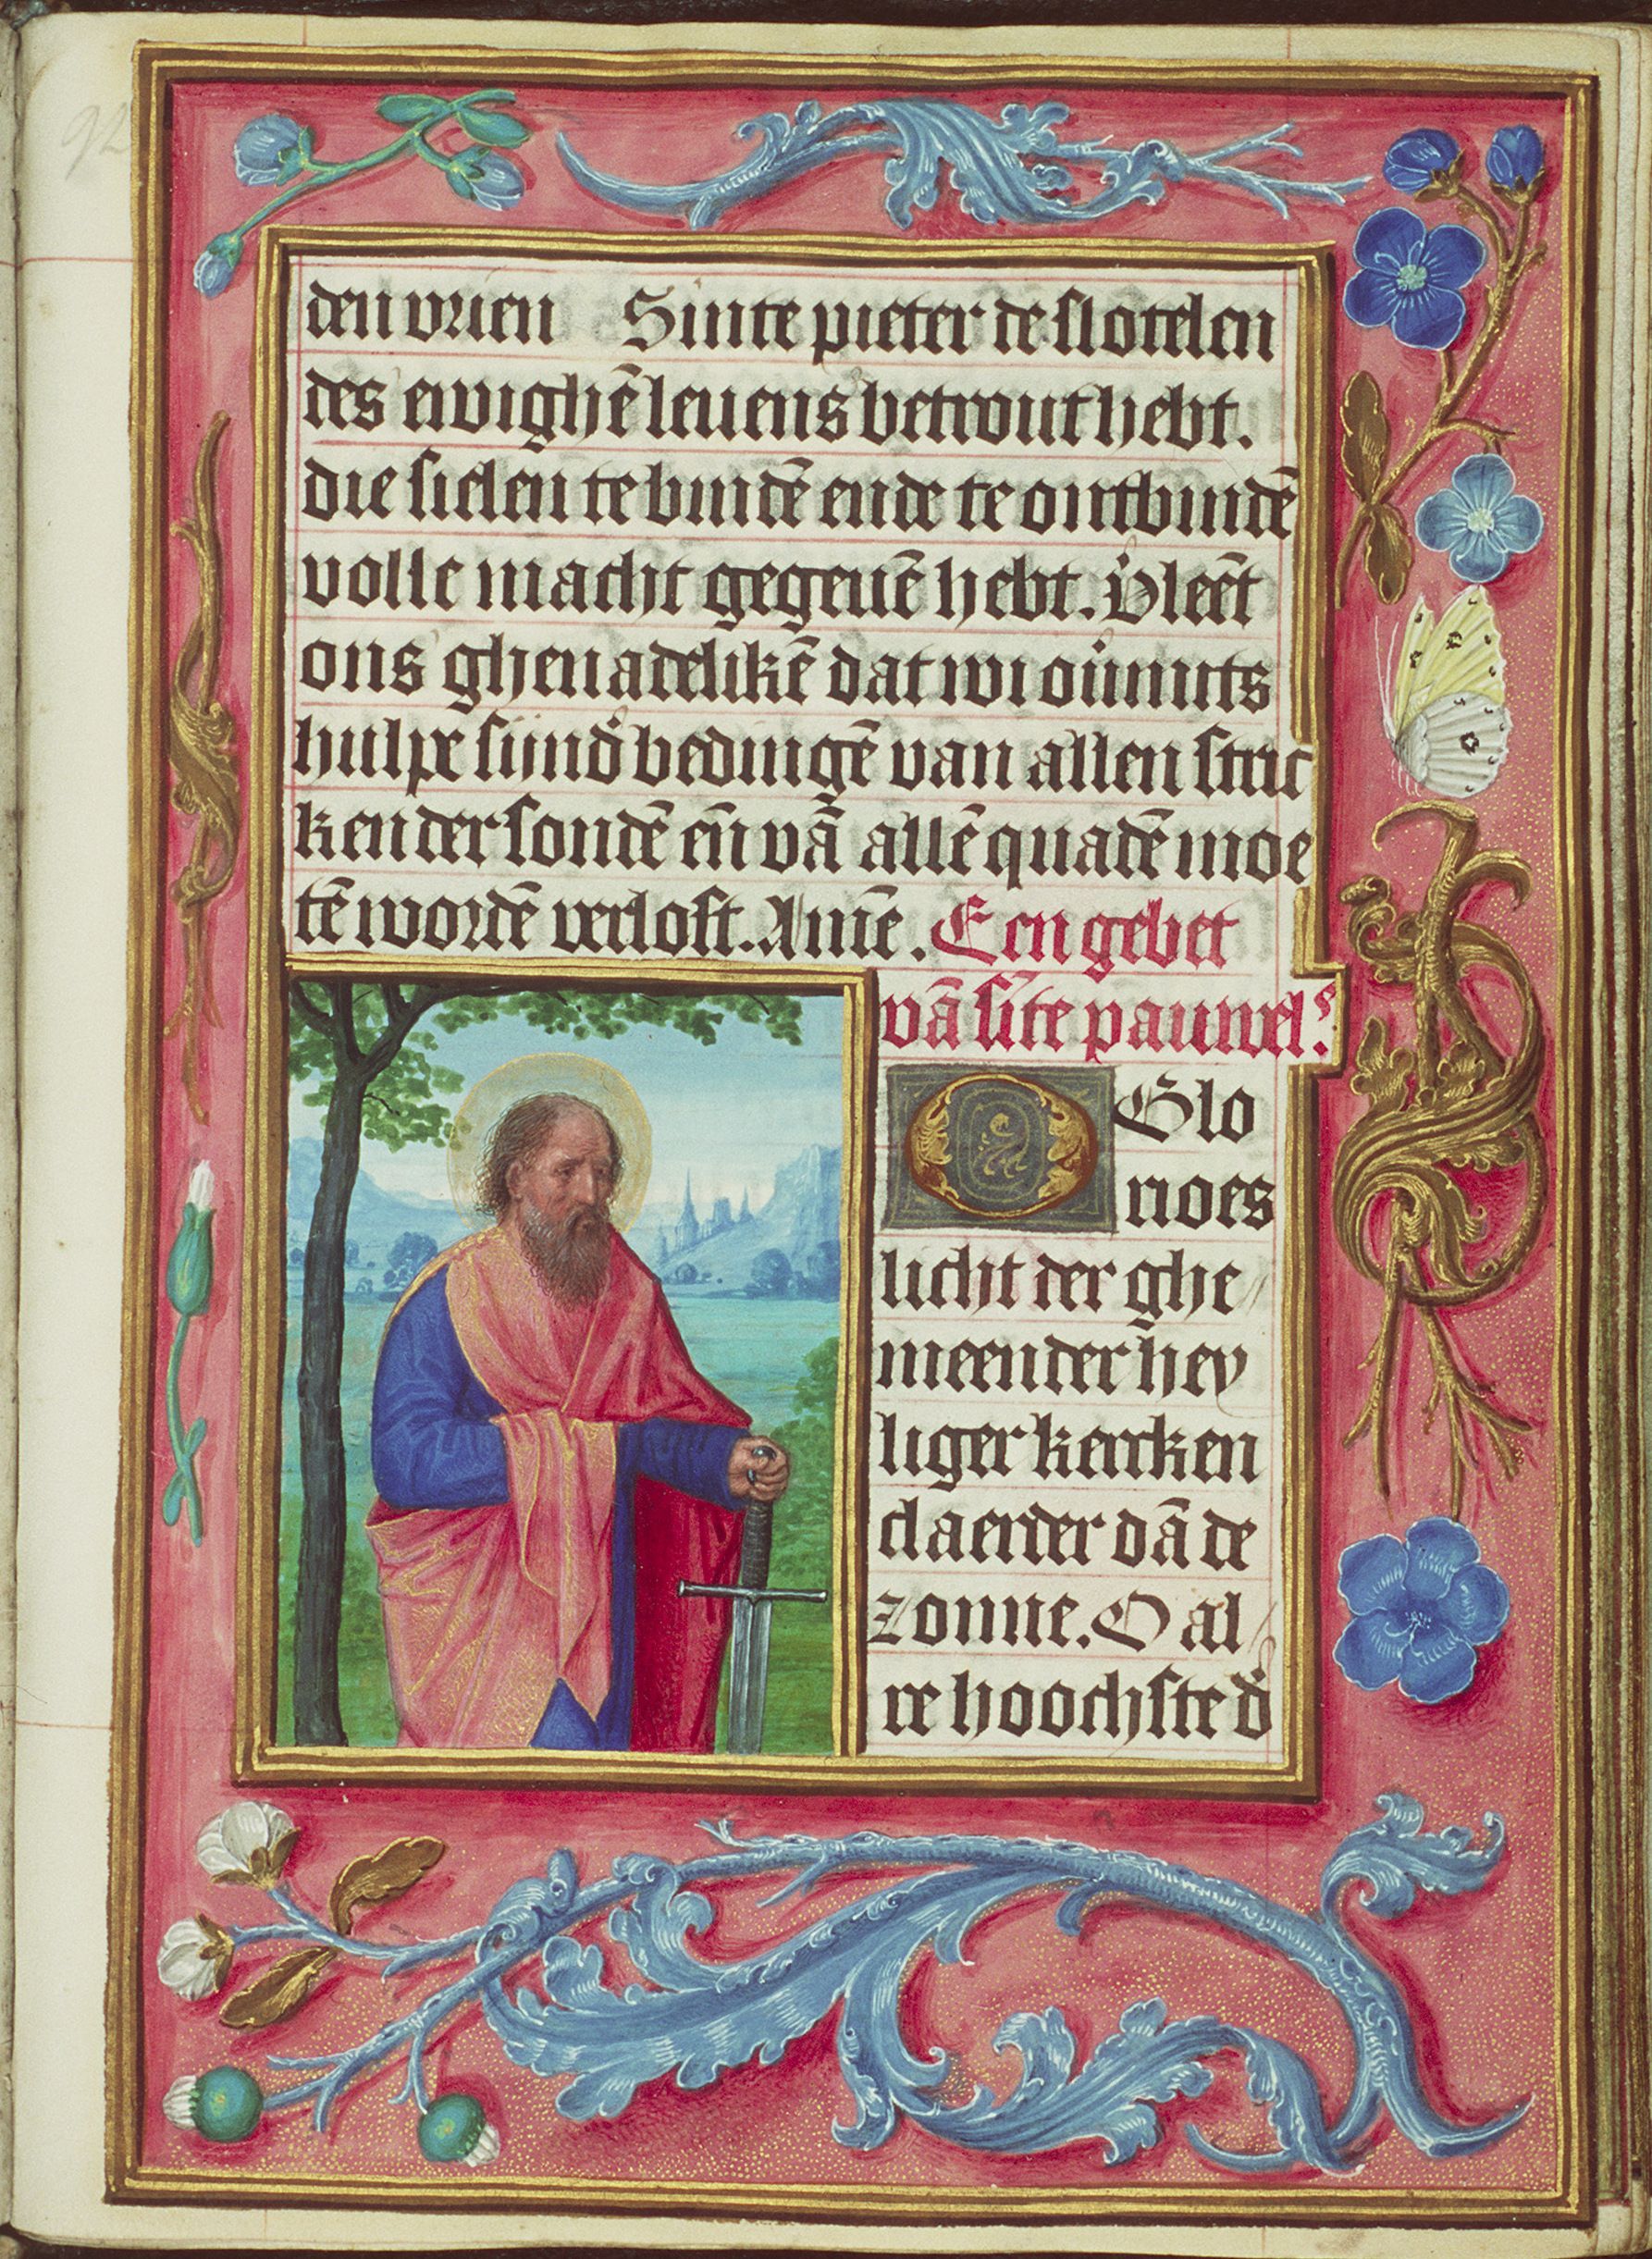 92
den vrien Sinte pieter de slotelen
des ewighē leuens betrout hebt.
die sielen te bindē ende te ontbindē
volle macht gegeuē hebt. v̕leēt
ons ghenadelikē dat wi ou̕mits
hulpe sijnd̕ bedingē van allen stric
ken der sondē eñ vā allē quadē moe
tē wordē verlost. Amē. Een gebet
vā sīte pauwels.
O Glo
rioes
licht der ghe
meender hey
liger kercken
claerder dā de
zonne. O al
re hoochste d̕